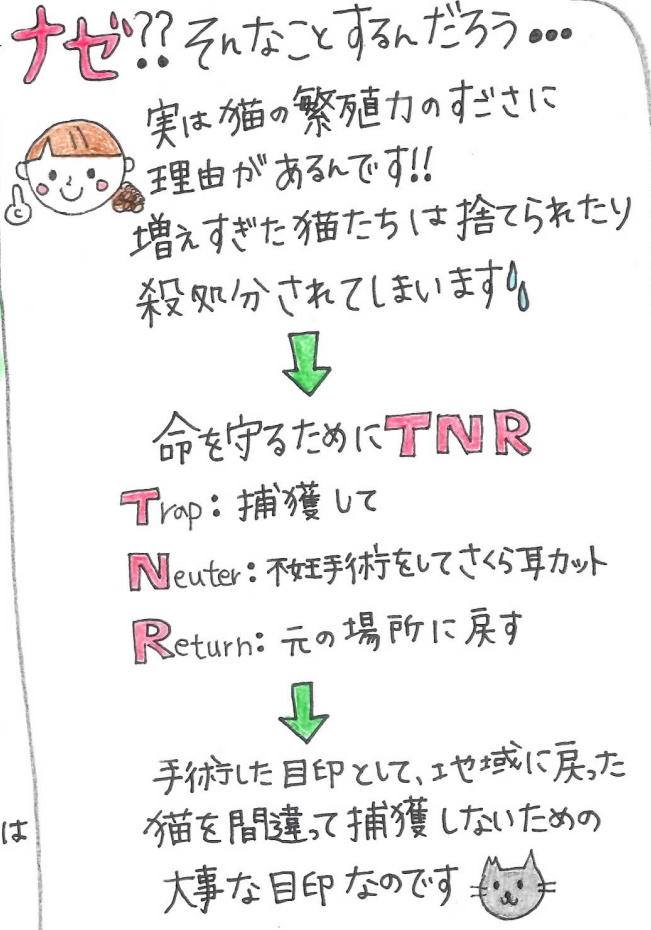 ナゼ??そんなことするんだろう•••
実は猫の繁殖力のすごさに
理由があるんです!!
増えすぎた猫たちは捨てられたり
殺処分されてしまいます
命を守るためにTNR
Trap:捕獲して
Neuter:不妊手術をしてさくら耳カット
Return:元の場所に戻す
手術した目印として、地域に戻った
猫を間違って捕獲しないための
大事な目印なのです
は